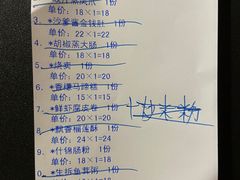 单价: 18×1=18
3. *沙爹酱金钱肚 1份
单价: 22×1=22
4. *胡椒蒸大肠 1份
单价: 18×1=18
5. *烧卖 1份
单价: 20×1=20
6. *香煎马蹄糕 1份
单价: 15×1=15
7. *鲜虾腐皮卷 1份
单价: 20×1=20
8. *飘香榴莲酥 1份
单价: 24×1=24
9. *什锦肠粉 1份
单价: 18×1=18
*生拆鱼茸粥 1份
炒米粉